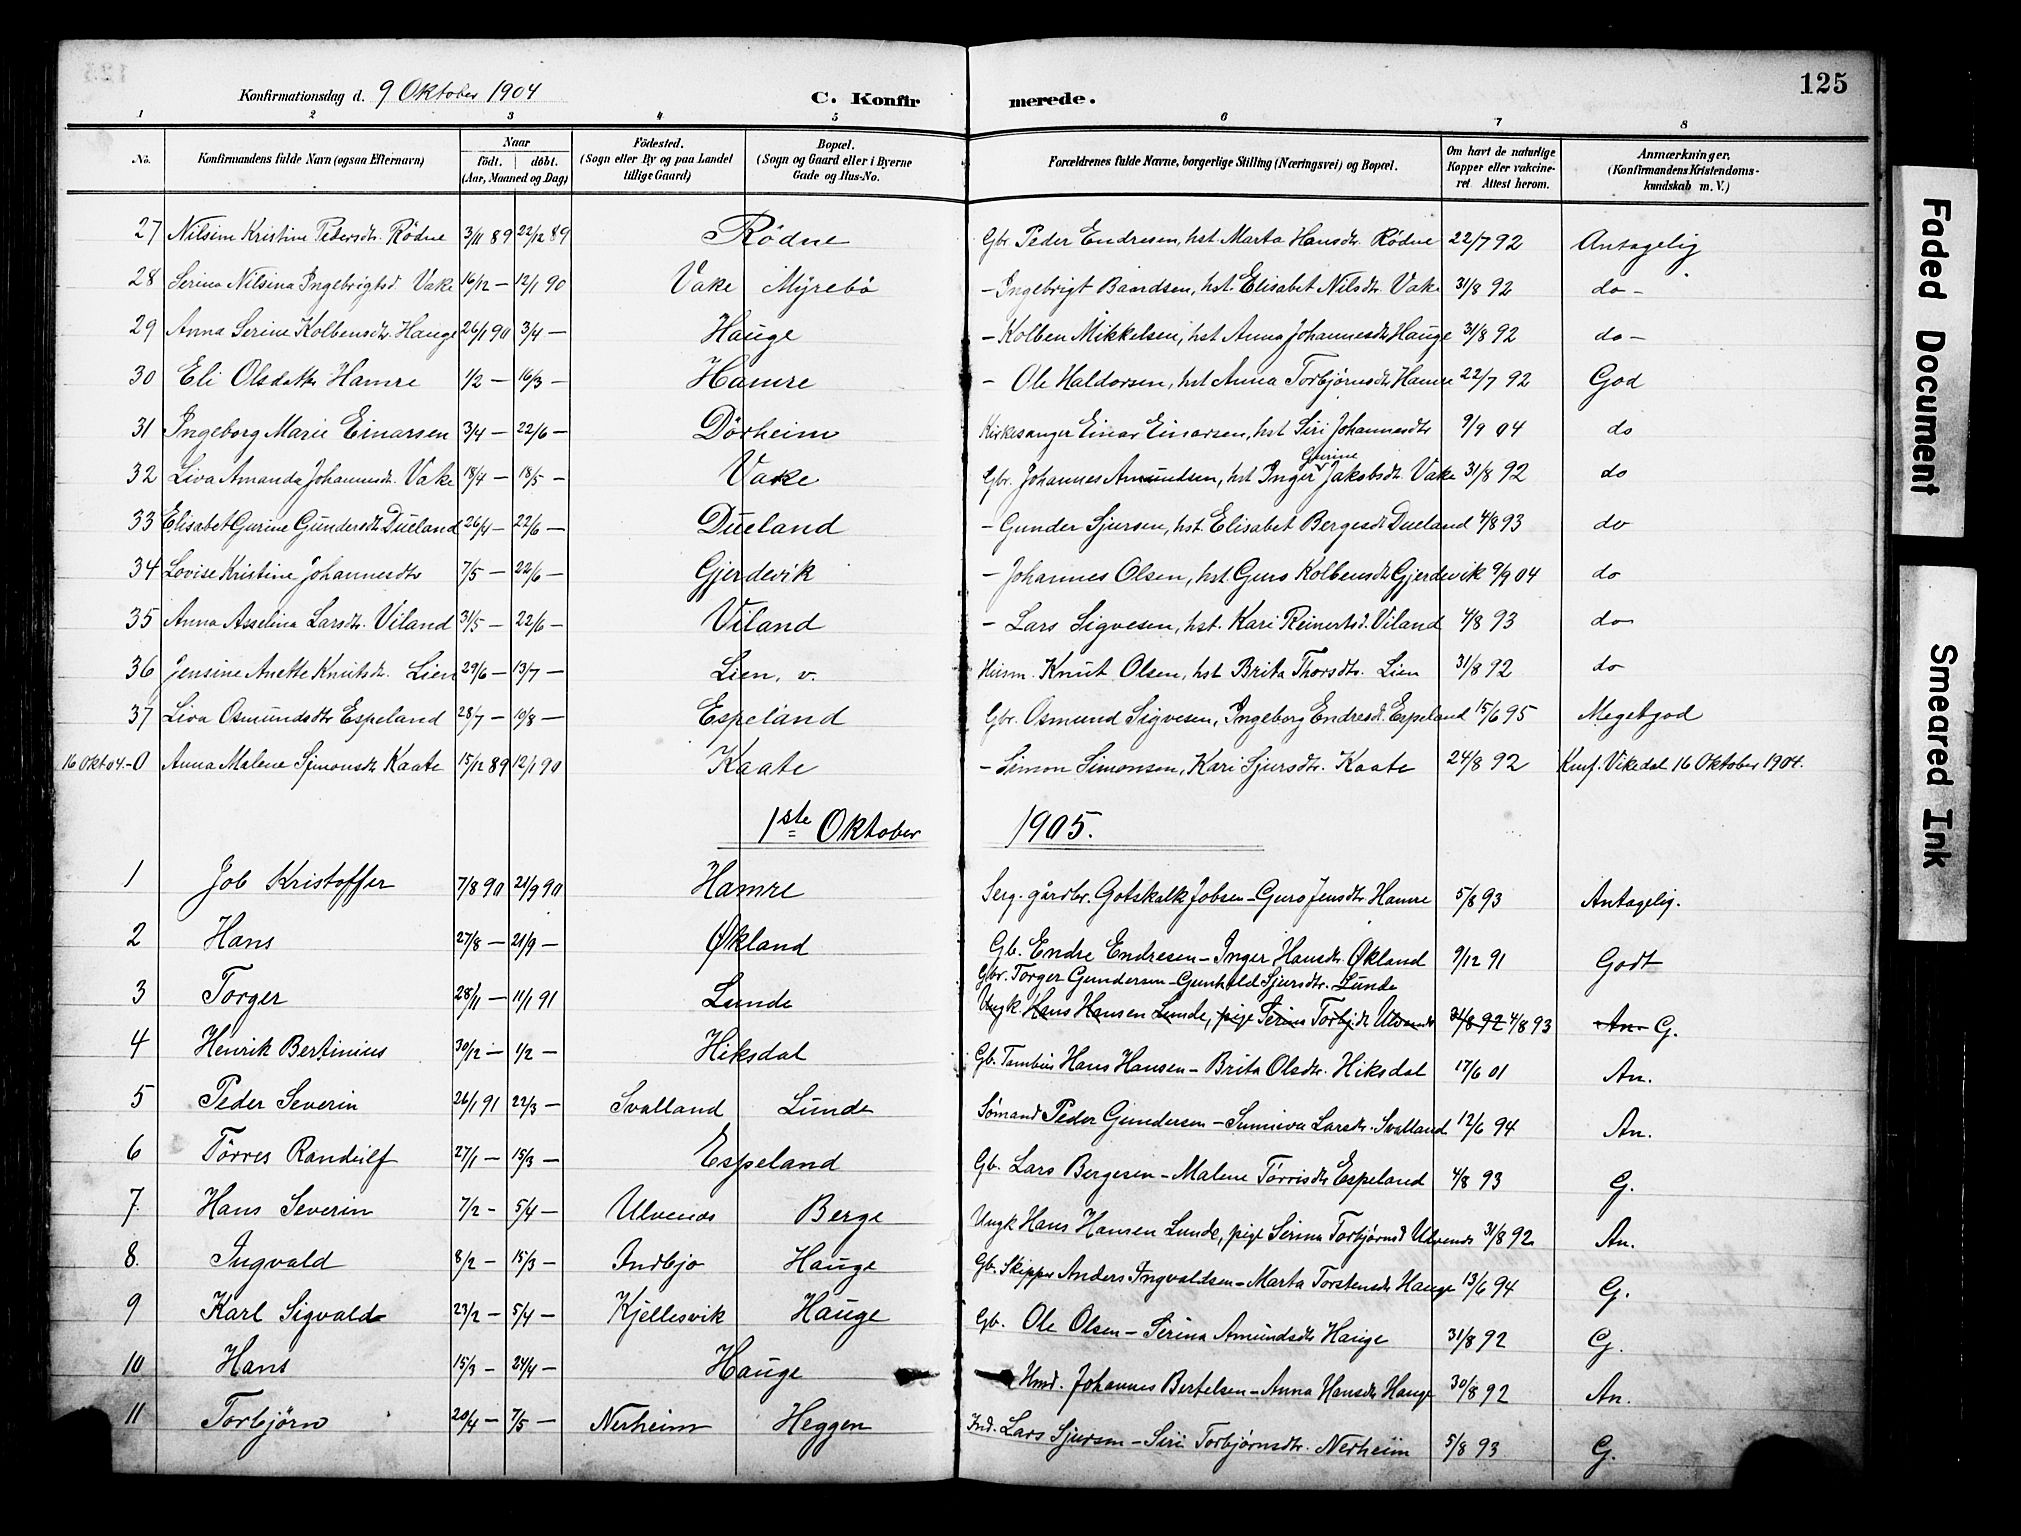 125
Konfirmationsdag d. 9 Oktober 1904 C. Konfirmerede.
1 2 3 4 5 6 7 8
No. Konfirmandens fulde Navn (ogsaa Efternavn) Naar födt. döbt. (Aar, Maaned og Dag) Födested. (Sogn eller By og paa Landet tillige Gaard) Bopæl. (Sogn og Gaard eller i Byerne Gade og Hus-No. Forældrenes fulde Navne, borgerlige Stilling (Næringsvei) og Bopæl. Om havt de naturlige Kopper eller vakcineret. Attest herom. Anmærkninger. (Konfirmandens Kristendomskundskab m. V.)
27 Nilsine Kristine Pedersdtr. Rödne 3/11 89 22/12 89 Rödne Gbr. Peder Endresen, hst. Marta Hansdtr. Rödne 22/7 92 Antagelig
28 Serina Nilsina Ingebrigtsd. Vake 16/12 — 12/1 90 Vake Myrebö - Ingebrigt Baardsen, hst. Elisabet Nilsdtr. Vake 31/8 92 do -
29 Anna Serine Kolbensdtr. Hauge 26/1 90 3/4 — Hauge - Kolben Mikkelsen, hst Anna Johannesdtr Hauge 31/8 92 do -
30 Eli Olsdatter Hamre 1/2 — 16/3 — Hamre - Ole Haldorsen, hst Anna Torbjörnsdtr Hamre 22/7 92 God
31 Ingeborg Marie Einarsen 3/4 — 22/6 — Dörheim Kirkesanger Einar Einarsen, hst Siri Johannesdtr 9/9 04 do
32 Liva Amanda Johannesdtr. Vake 18/4 — 18/5 — Vake Gbr. Johannes Amundsen, hst Inger Gurine Jakobsdtr Vake 31/8 92 do
33 Elisabet Gurine Gundersdtr Dueland 26/4 — 22/6 — Dueland - Gunder Sjursen, hst. Elisabet Bergesdtr Dueland 4/8 93 do
34 Lovise Kristine Johannesdtr 7/5 — 22/6 — Gjerdevik - Johannes Olsen, hst. Guro Kolbensdtr Gjerdevik 9/9 04 do
35 Anna Asselina Larsdtr. Viland 31/5 — 22/6 — Viland - Lars Sigvesen, hst. Kari Reinertsd. Viland 4/8 93 do
36 Jensine Anette Knutsdtr. Lien 29/6 — 13/7 — Lien, v. Husm. Knut Olsen, hst Brita Thorsdtr. Lien 31/8 92 do
37 Liva Osmundsdtr Espeland 28/7 — 10/8 — Espeland Gbr. Osmund Sigvesen, Ingeborg Endresd. Espeland 15/6 95 Megetgod
16 Okt 04. - 0 Anna Malene Simonsdtr Kaate 15/12 89 12/1 90 Kaate - Simon Simonsen, Kari Sjursdtr. Kaate 24/8 92 Konf. Vikedal 16 Oktober 1904.
1ste Oktober 1905.
1 Job Kristoffer 7/8 90 21/9 90 Hamre Serg. gårdbr. Gotskalk Jobsen - Guro Jensdtr Hamre 5/8 93 Antagelig.
2 Hans 27/8 — 21/9 — Økland Gb. Endre Endresen - Inger Hansdtr. Økland 9/12 91 Godt
3 Torger 28/11 — 11/1 91 Lunde Gbr. Torger Gundersen - Gunhild Sjursdtr. Lunde
Ungk. Hans Hansen Lunde, pige Serina Torbj.dtr Ulvenos 31/8 92 4/8 93 An- G.
4 Henrik Bertinius 30/12 — 1/2 — Hiksdal Gb. Tambur Hans Hansen - Brita Olsdtr. Hiksdal 17/6 01 An.
5 Peder Severin 26/1 91 22/3 — Svalland Lunde Sömand Peder Gundersen - Sunniva Larsdtr. Svalland 12/6 94 An.
6 Törres Randulf 27/1 — 15/3 — Espeland Gb. Lars Bergesen - Malene Törrisdtr Espeland 4/8 93 G.
7. Hans Severin 7/2 - 5/4 — Ulvenos Berge Ungk Hans Hansen Lunde, pige Serina Torbjörnsd Ulvenos 31/8 92 An.
8. Ingvald 8/2 — 15/3 — Indbjo Hauge Gb. Skipper Anders Ingvaldsen - Marta Torstensdtr Hauge 13/6 94 G.
9 Karl Sigvald 23/2 — 5/4 — Kjellesvik Hauge Gb. Ole Olsen - Serina Amundsdtr Hauge 31/8 92 G.
10 Hans 15/3 — 24/4 — Hauge Hmd. Johannes Bertelsen - Anna Hansdtr Hauge 30/8 92 An.
11 Torbjörn 20/4 — 7/5 — Nerheim Heggen Ind. Lars Sjursen - Siri Torbjörnsdtr. Nerheim 5/8 93 G.
Faded Document
Smeared Ink